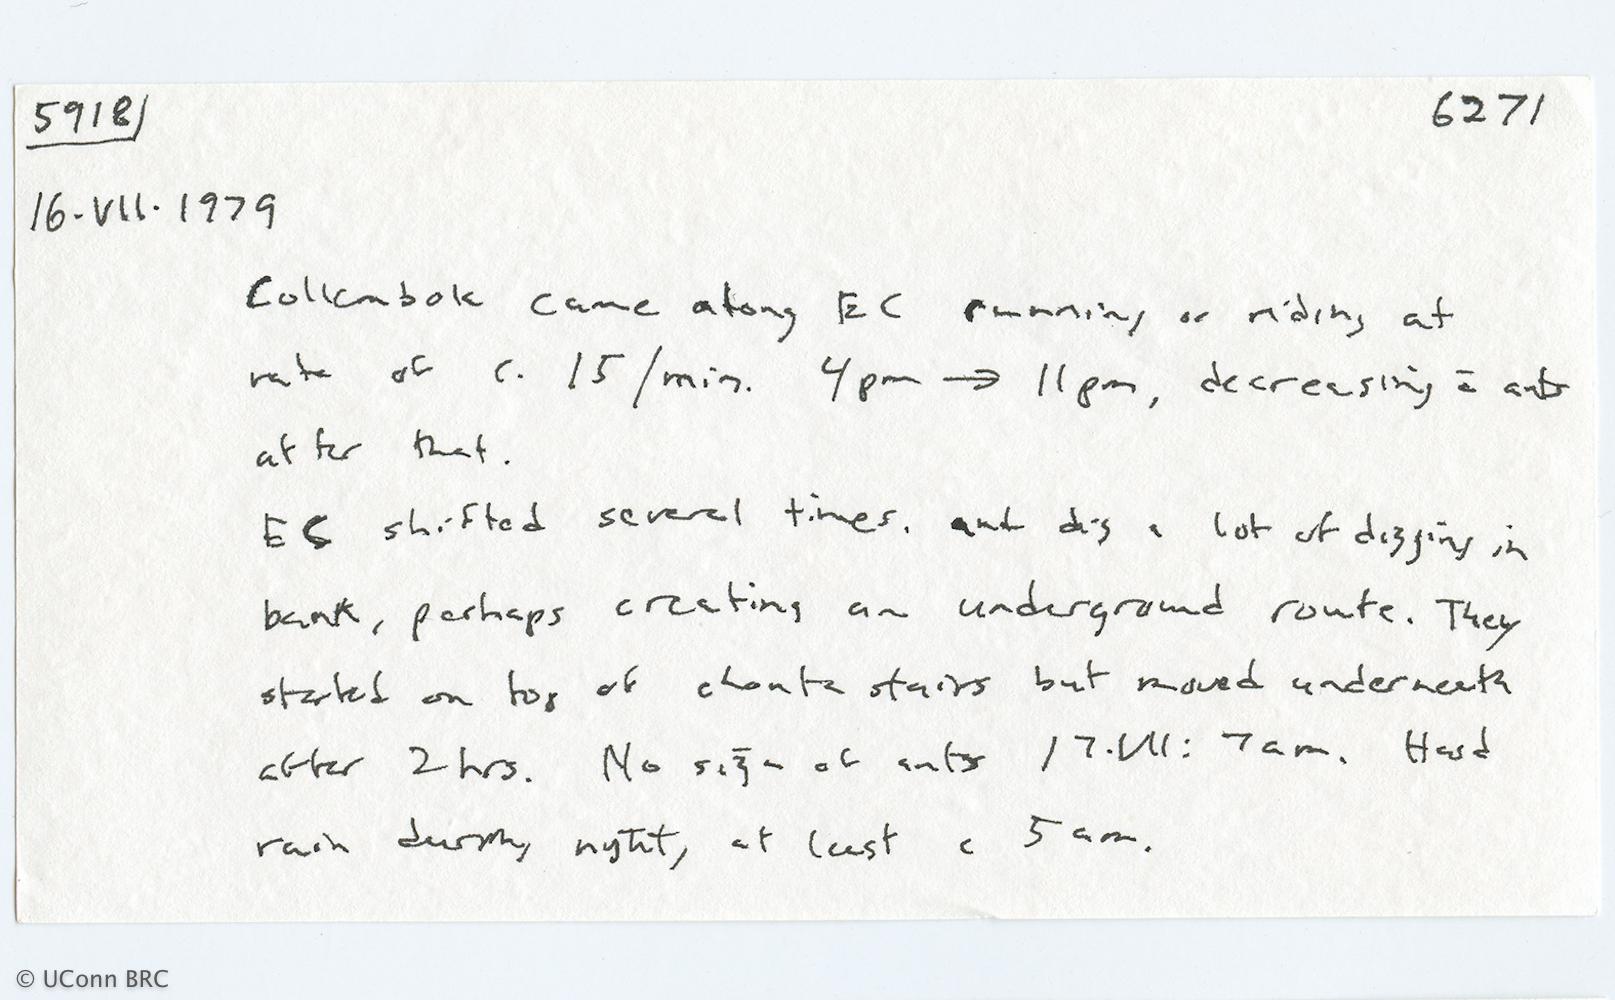 5918 6271
16.VII.1979
Collembola came along EC running or riding at
rate of c. 15/min. 4pm → 11pm, decreasing c̄ ants
after that.
EC shifted several times. and dig a lot of digging in
bank, perhaps creating an underground route. They
started on top of chonta stairs but moved underneath
after 2 hrs. No sign of ants 17.VII: 7am. Hard
rain during night, at least c 5am.
© UConn BRC